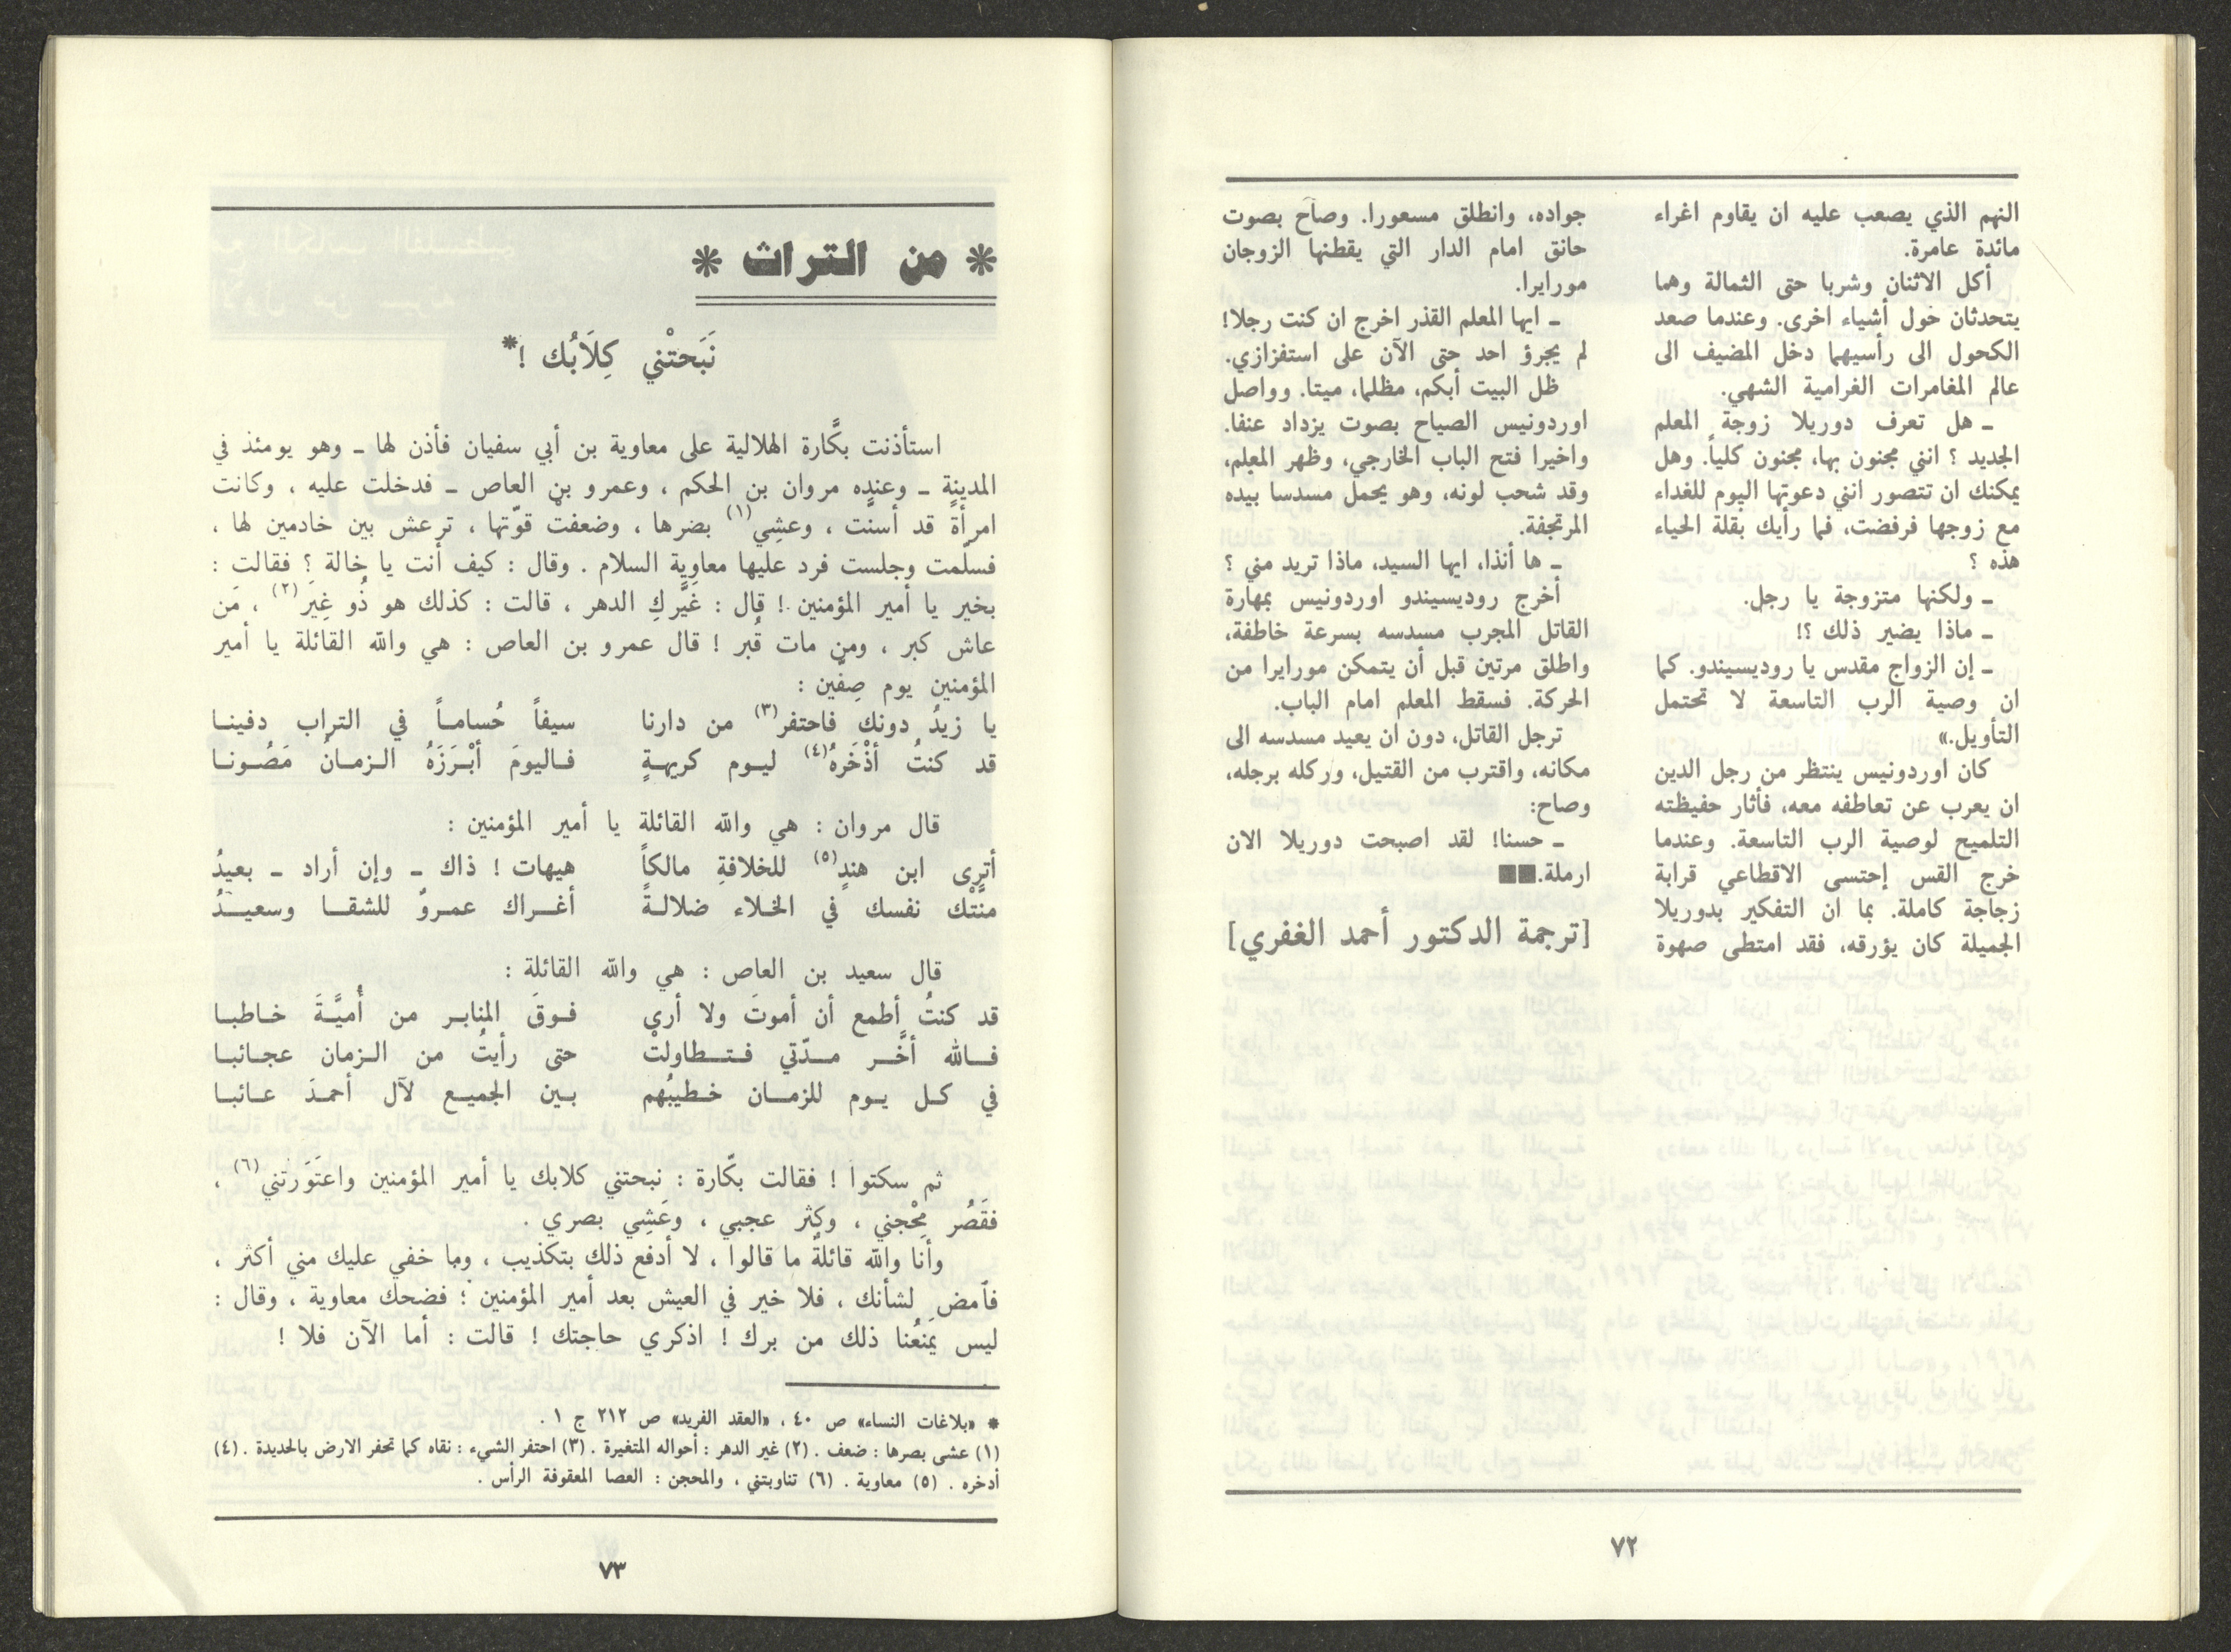 النهم الذي يصعب عليه ان يقاوم اغراء
مائدة عامرة.
أكل الاثنان وشربا حتى الثمالة وهما
يتحدثان حول أشياء اخرى. وعندما صعد
الكحول الى رأسيهما دخل المضيف الى
عالم المغامرات الغرامية الشهي.
ـ هل تعرف دوريلا زوجة المعلم
الجديد ؟ انني مجنون بها، مجنون كلياً. وهل
يمكنك ان تتصور انني دعوتها اليوم للغداء
مع زوجها فرفضت، فما رأيك بقلة الحياء
هذه ؟
ـ ولكنها متزوجة يا رجل.
ـ ماذا يضير ذلك ؟!
ـ إن الزواج مقدس يا روديسيندو. كما
ان وصية الرب التاسعة لا تحتمل
التأويل.»
كان اوردونيس ينتظر من رجل الدين
ان يعرب عن تعاطفه معه، فأثار حفيظته
التلميح لوصية الرب التاسعة. وعندما
خرج القس إحتسى الاقطاعي قرابة
زجاجة كاملة. بما ان التفكير بدوريلا
الجميلة كان يؤرقه، فقد امتطى صهوة
جواده، وانطلق مسعورا. وصاح بصوت
حانق امام الدار التي يقطنها الزوجان
مورايرا.
ـ ايها المعلم القذر اخرج ان كنت رجلا!
لم يجرؤ احد حتى الآن على استفزازي.
ظل البيت أبكم، مظلما، ميتا. وواصل
اوردونيس الصياح بصوت يزداد عنفا.
واخيرا فتح الباب الخارجي، وظهر المعلم،
وقد شحب لونه، وهو يحمل مسدسا بيده
المرتجفة.
ـ ها أنذا، ايها السيد، ماذا تريد مني ؟
أخرج روديسيندو اوردونيس بمهارة
القاتل المجرب مسدسه بسرعة خاطفة،
واطلق مرتين قبل أن يتمكن مورايرا من
الحركة. فسقط المعلم امام الباب.
ترجل القاتل، دون ان يعيد مسدسه الى
مكانه، واقترب من القتيل، وركله برجله،
وصاح:
ـ حسنا! لقد اصبحت دوريلا الان
ارملة.■■
[ترجمة الدكتور أحمد الغفري]
٧٢
* من التراث *
نَبَحتْني كِلَابُك !*
استأذنت بكَّارة الهلالية على معاوية بن أبي سفيان فأذن لها ـ وهو يومئذ في
المدينة ـ وعنده مروان بن الحكم ، وعمرو بن العاص ـ فدخلت عليه ، وكانت
امرأة قد أسنّت ، وعشِي(١) بصرها ، وضعفتْ قوّتها ، ترعش بين خادمين لها ،
فسلّمت وجلست فرد عليها معاوية السلام . وقال : كيف أنت يا خالة ؟ فقالت :
بخير يا أمير المؤمنين ! قال : غَيَّركِ الدهر ، قالت : كذلك هو ذُو غِيَر(٢) ، مَن
عاش كبر ، ومن مات قُبر ! قال عمرو بن العاص : هي والله القائلة يا أمير
المؤمنين يوم صِفّين :
يا زيدُ دونك فاحتفر(٣) من دارنا سيفاً حُساماً في التراب دفينا
قد كنتُ أذْخَرهُ(٤) ليوم كريهةٍ فاليومَ أبْرَزَهُ الزمانُ مَصُونا
قال مروان : هي والله القائلة يا أمير المؤمنين :
أترى ابن هندٍ(٥) للخلافةِ مالكاً هيهات ! ذاك ـ وإن أراد ـ بعيدُ
منّتْك نفسك في الخلاء ضلالةً أغراك عمروٌ للشقا وسعيدُ
قال سعيد بن العاص : هي والله القائلة :
قد كنتُ أطمع أن أموتَ ولا أرى فوقَ المنابر من أُميَّةَ خاطبا
فالله أخَّر مدّتي فتطاولتْ حتى رأيتُ من الزمان عجائبا
في كل يوم للزمان خطيبُهم بين الجميع لآل أحمدَ عائبا
ثم سكتوا ! فقالت بكّارة : نبحتني كلابك يا أمير المؤمنين واعتَوَرَتني(٦) ،
فقَصُر مِحْجني ، وكثر عجبي ، وعَشِي بصري .
وأنا والله قائلةٌ ما قالوا ، لا أدفع ذلك بتكذيب ، وما خفي عليك مني أكثر ،
فٱمض لشأنك ، فلا خير في العيش بعد أمير المؤمنين ؛ فضحك معاوية ، وقال :
ليس يَمنَعُنا ذلك من برك ! اذكري حاجتك ! قالت : أما الآن فلا !
* «بلاغات النساء» ص ٤٠ ، «العقد الفريد» ص ٢١٢ ج ١ .
(١) عشى بصرها : ضعف . (٢) غير الدهر : أحواله المتغيرة . (٣) احتفر الشيء : نقاه كما تحفر الارض بالحديدة . (٤)
أدخره . (٥) معاوية . (٦) تناوبتني ، والمحجن : العصا المعقوفة الرأس .
٧٣